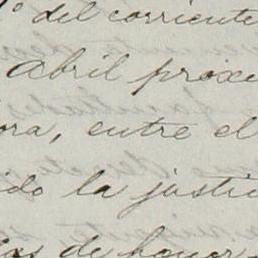 1º del corriente
abril prox
ora, entre el
ido la justi
de honor